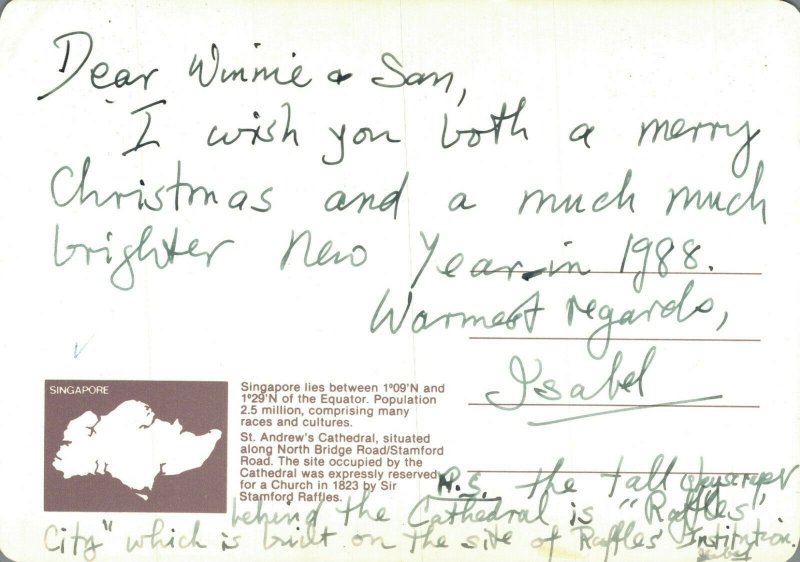 Dear Winnie & San,
I wish you both a merry
Christmas and a much much
brighter New Year in 1988.
Warmest regards,
Isabel
SINGAPORE
Singapore lies between 1º09'N and
1º29'N of the Equator. Population
2.5 million, comprising many
races and cultures.
St. Andrew's Cathedral, situated
along North Bridge Road/Stamford
Road. The site occupied by the
Cathedral was expressly reserved
for a Church in 1823 by Sir
Stamford Raffles.
P.S. the tall skyscraper
behind the Cathedral is "Raffles
City" which is built on the site of Raffles Institution.